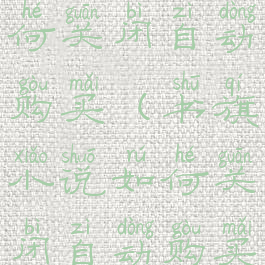 hé guān bì zì dòng
何关闭自动
gòu mǎi shū qí
购买(书旗
xiǎo shuō rú hé guān
小说如何关
bì zì dòng gòu mǎi
闭自动购买